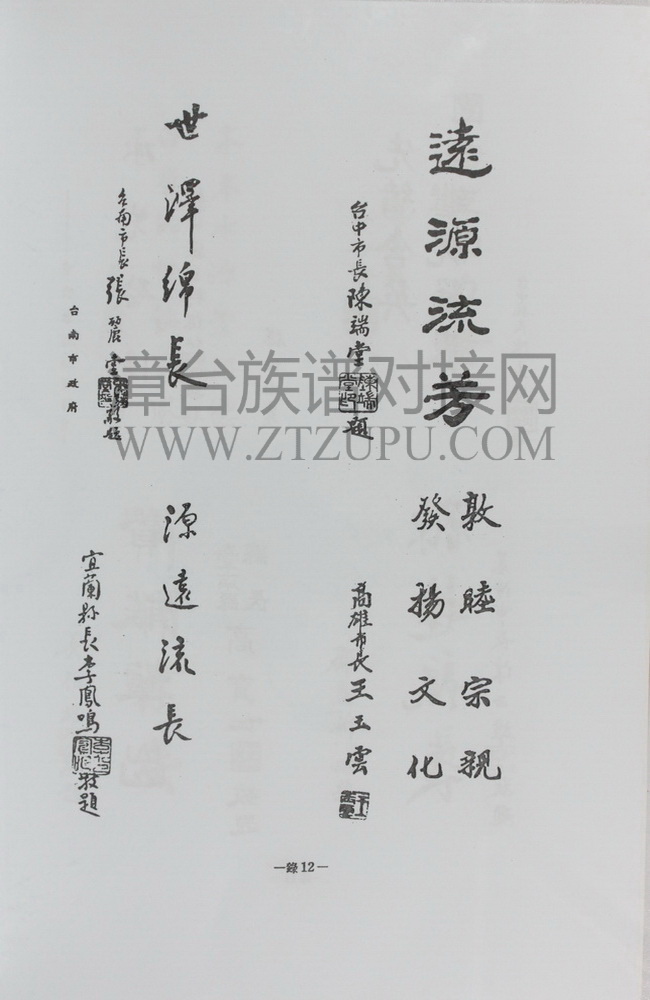 遠源流芳
台中市長陳端堂
陳端
堂印
題
敦睦宗親
發揚文化
高雄市長王玉雲
世澤綿長
台南市長張麗堂
敬題
台南市政府
源遠流長
宜蘭縣長李鳳鳴
敬題
—錄12—
章台族谱对接网
WWW.ZTZUPU.COM